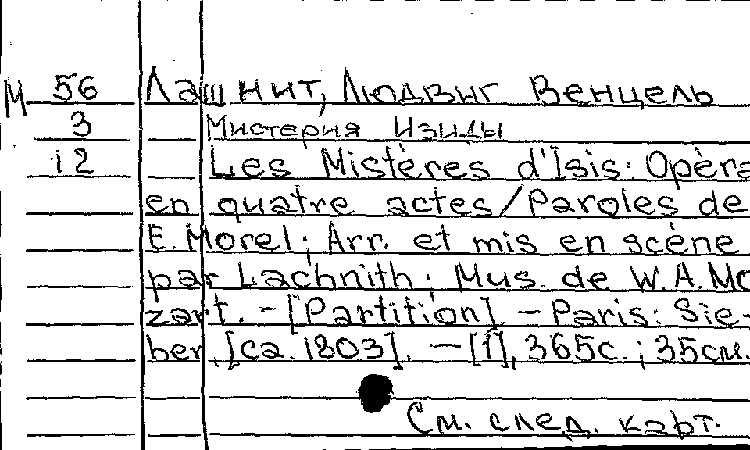 М 56 Лашнит, Людвиг Венцель
3 Мистерия Изиды
12 Les Mistères d'Isis: Opèra
en quatre actes/Paroles de
E. Morel; Arr. et mis en scène
par Lachnith; Mus. de W.A. Mo
zart. – [Partition] – Paris: Sie-
ber, [ca. 1803]. – [1], 365с.; 35см.
См. след. карт.